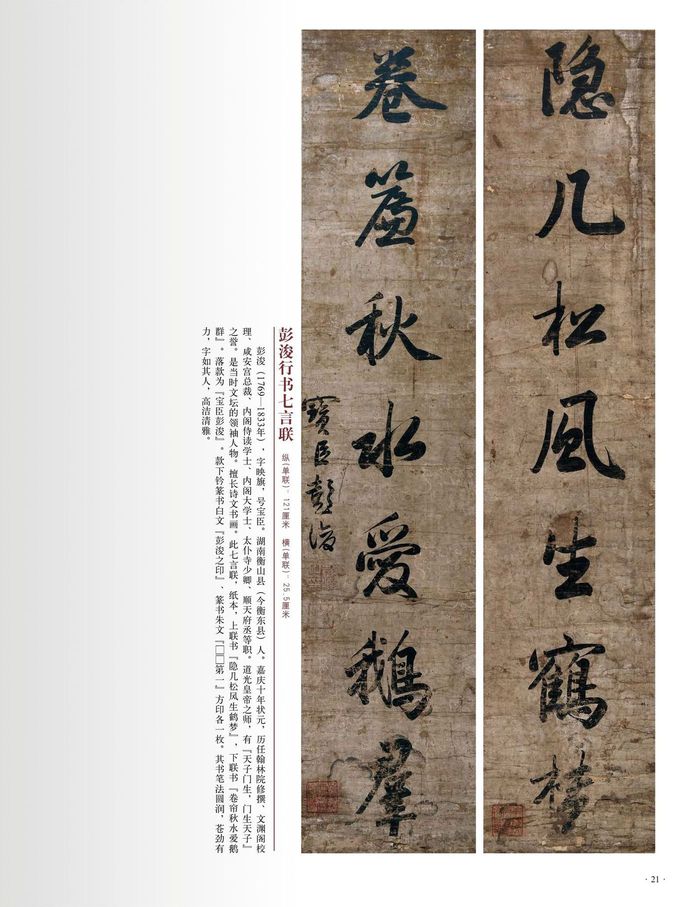 隐几松风生鹤梦
卷簾秋水愛鵝羣
寶臣彭浚
彭浚行书七言联
纵(单联): 121厘米 横(单联): 25.5厘米
彭浚(1769—1833年),字映旗,号宝臣。湖南衡山县(今衡东县)人。嘉庆十年状元,历任翰林院修撰、文渊阁校
理、咸安宫总裁、内阁侍读学士、内阁大学士、太仆寺少卿、顺天府丞等职。道光皇帝之师,有『天子门生,门生天子』
之誉。是当时文坛的领袖人物。擅长诗文书画。此七言联,纸本,上联书『隐几松风生鹤梦』,下联书『卷帘秋水爱鹅
群』。落款为『宝臣彭浚』。款下钤篆书白文『彭浚之印』、篆书朱文『□□第一』方印各一枚。其书笔法圆润,苍劲有
力,字如其人,高洁清雅。
· 21 ·